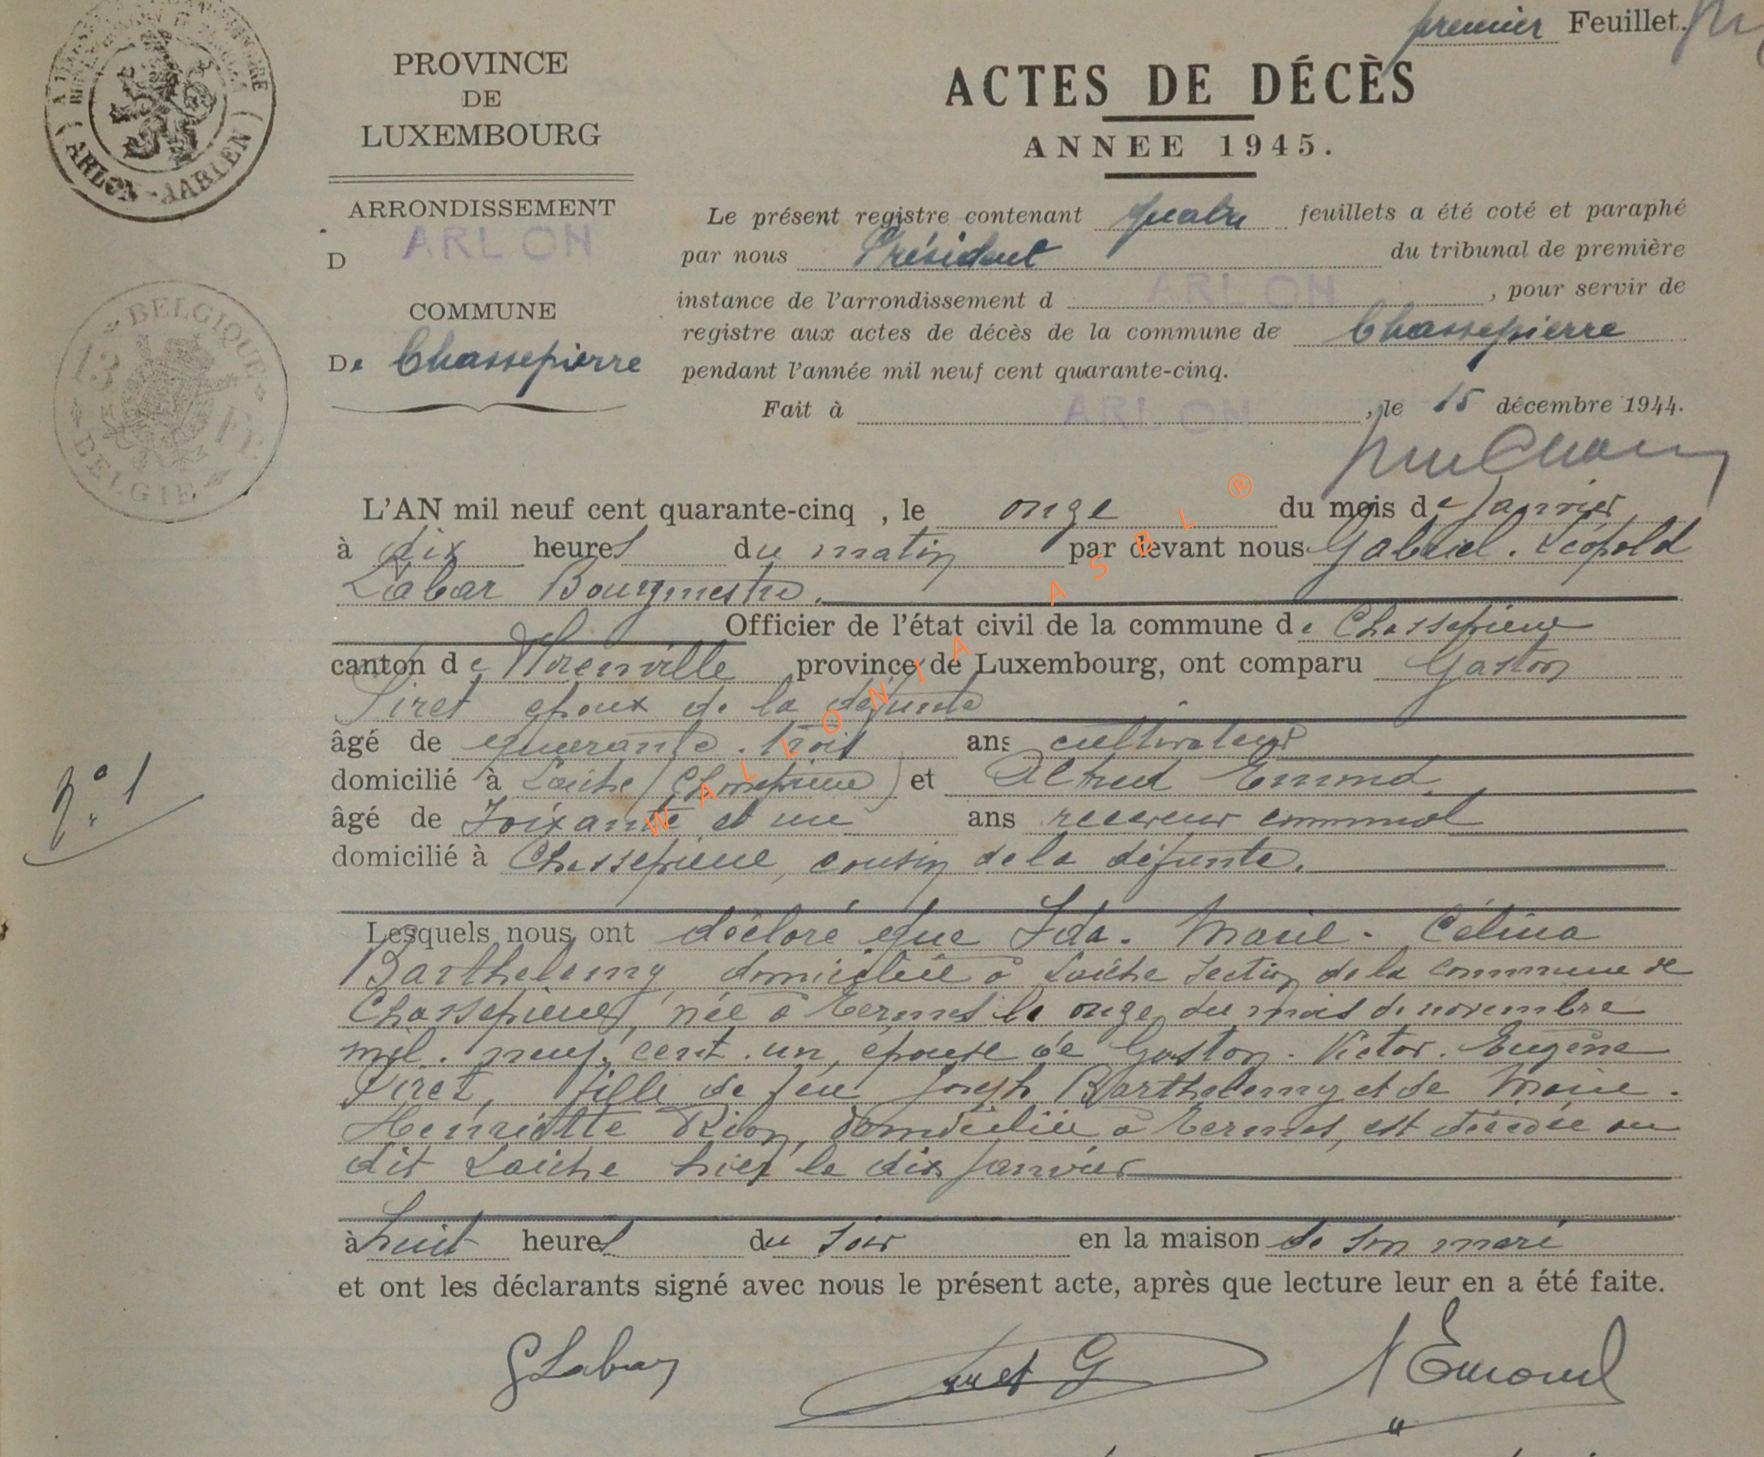 premier Feuillet.
PROVINCE
DE
LUXEMBOURG
ARRONDISSEMENT
D ARLON
COMMUNE
De Chassepierre
ARLON - AARLEN
BELGIQUE
13 Fr
BELGIE
ACTES DE DÉCÈS
ANNEE 1945.
Le présent registre contenant quatre feuillets a été coté et paraphé
par nous Président du tribunal de première
instance de l'arrondissement d ARLON, pour servir de
registre aux actes de décès de la commune de Chassepierre
pendant l'année mil neuf cent quarante-cinq.
Fait à ARLON, le 15 décembre 1944.
L'AN mil neuf cent quarante-cinq , le onze du mois de Janvier
à dix heures du matin par devant nous Gabriel. Léopold
Labar Bourgmestre.
Officier de l'état civil de la commune de Chassepierre
canton de Florenville province de Luxembourg, ont comparu Gaston
Piret époux de la défunte
âgé de quarante. trois ans cultivateur
domicilié à Laiche (Chassepierre) et Alfred Emond,
âgé de soixante et un ans receveur communal
domicilié à Chassepierre, cousin de la défunte.
N° 1
Lesquels nous ont déclaré que Ida. Marie. Célina
Barthelemy, domiciliée à Laiche section de la commune de
Chassepierre, née à Termes le onze du mois de novembre
mil. neuf. cent. un, épouse de Gaston. Victor. Eugène
Piret, fille de feu Joseph Barthelemy et de Marie.
Henriette Rion, domiciliée à Termes, est décédée au
dit Laiche hier le dix Janvier
à huit heures du soir en la maison de son mari
et ont les déclarants signé avec nous le présent acte, après que lecture leur en a été faite.
G Labar Piret G A Emond
WALLONIA ASBL ®